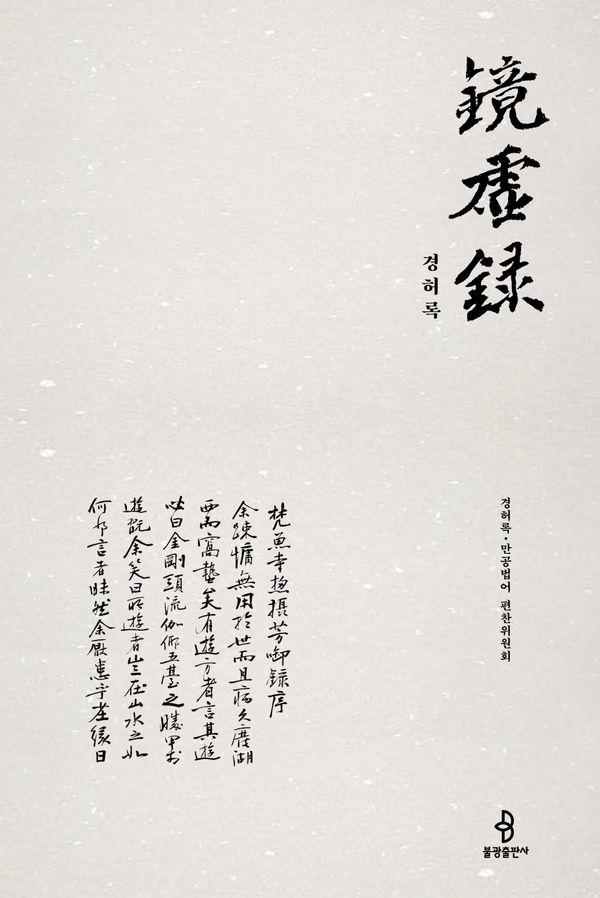 鏡虛録
경허록
경허록·만공법어 편찬위원회
梵魚寺總攝芳啣錄序
余踈慵無用於世而且病久塵湖
西而窩蟄矣有遊方者言其遊
必曰金剛頭流伽倻五臺之勝甲於
遊既余笑曰所遊者豈在山水之
何 言者昧然余 寺 緣日
불광출판사